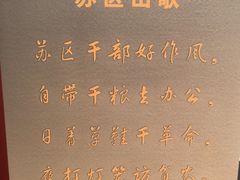 苏区山歌
苏区干部好作风,
自带干粮去办公,
日着草鞋干革命,
夜打灯笼访贫农。